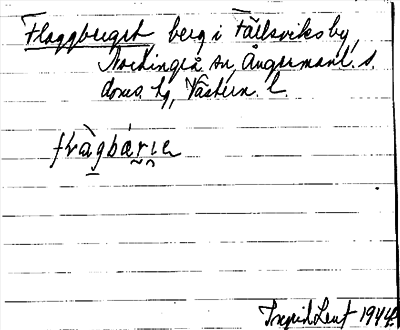 Flaggberget berg i Fällsviks by,
Nordingrå sn, Ångermanl. s.
doms. hg, Västern. l.
flàgbærıe
Ingrid Leuf 1944.